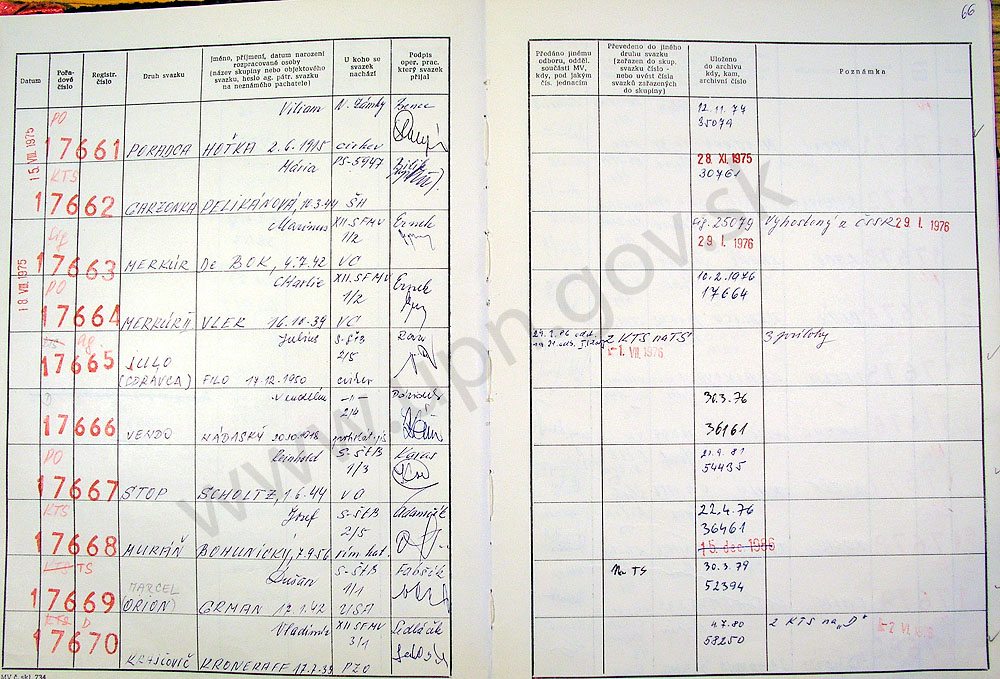 66
Datum
Pořadové číslo
Registr. číslo
Druh svazku
Jméno, příjmení, datum narození rozpracované osoby (název skupiny nebo objektového svazku, heslo ag. pátr. svazku na neznámého pachatele)
U koho se svazek nachází
Podpis oper. prac. který svazek přijal
Předáno jinému odboru, odděl. součásti MV, kdy, pod jakým čís. jednacím
Převedeno do jiného druhu svazku [zařazen do skup. svazku číslo - nebo uvést čísla svazků zařazených do skupiny]
Uloženo do archivu kdy, kam, archivní číslo
Poznámka
15. VIII. 1975
PO
17661
PORADCA
Viliam
HOŤKA 2.6.1915
N. Zámky
cirkev
12.11.74
35079
KTS
17662
GARZONKA
Mária
PELIKÁNOVÁ
PS-5947
ŠH
28 XI. 1975
30761
17663
MERKÚR
Marinus
De BOK, 4.7.42
XII. SFMV
1/2
VC
Ernek
25079
29 I. 1976
Vyhostený z ČSSR 29 I. 1976
18 VIII. 1975
PO
17664
MERKÚR II
Charlie
VLEK 16.10.39
XII. SFMV
1/2
VC
Ernek
10.2.1976
17664
Ag.
17665
JULO
Julius
FILO 17.12.1950
S-ŠtB
2/5
cirkev
2 KTS na TS
-1. VII. 1976
3 prílohy
17666
VENDO
Vendelín
NÁDASKÝ
-11-
2/4
30.3.76
36161
PO
17667
STOP
Reinhold
SCHOLTZ, 1.6.44
S-ŠtB
1/3
Karas
21.9.81
54435
KTS
17668
MURÁŇ
Jozef
BOHUNICKÝ, 7.9.56
S-ŠtB
2/5
rím. kat.
Adamčák
22.4.76
36461
15. dec 1986
KTS TS
17669
MARCEL
ORION)
Dušan
GRMAN 17.1.42
S-ŠtB
1/1
USA
Fabšík
Na TS
30.3.79
52394
KTS D
17670
KRAJČOVIČ
Vladimír
KRONERAFF 17.7.33
XII SFMV
3/1
PZO
Sedláčik
4.7.80
58250
2 KTS na „D"
MV č. skl. 734
www.upn.gov.sk